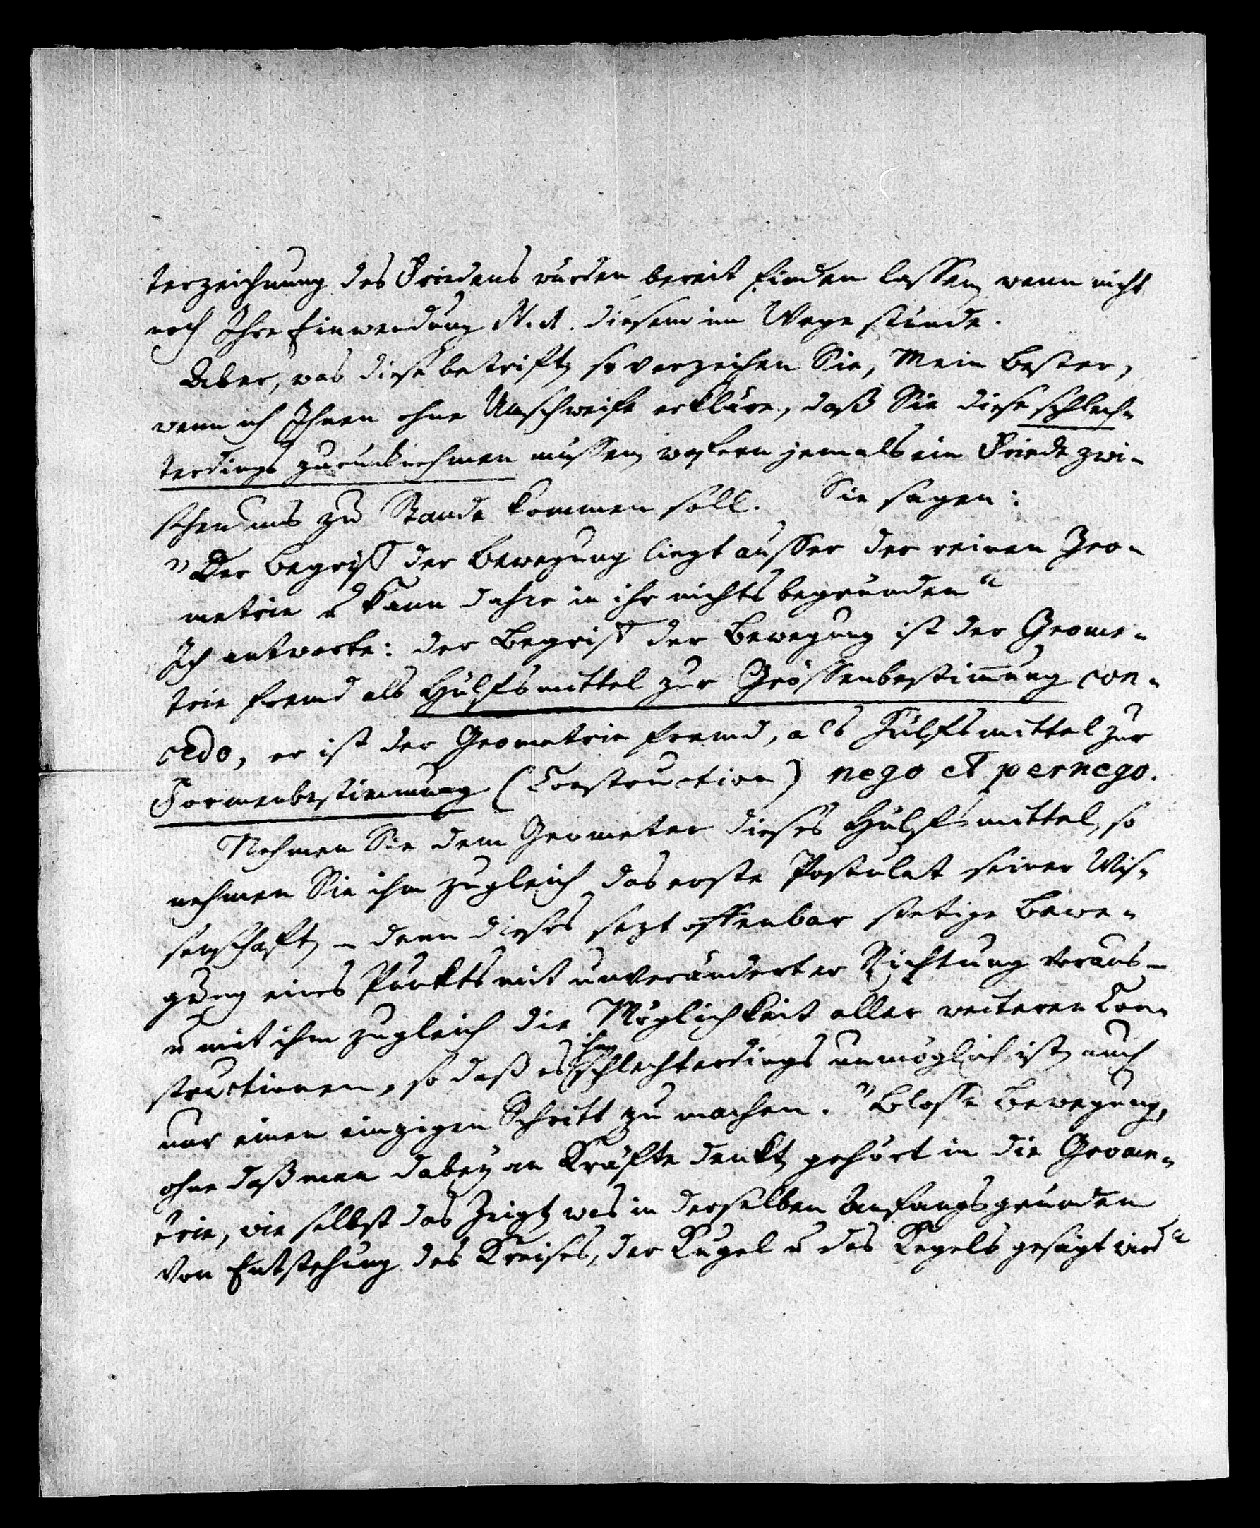 terzeichnung des Friedens würden bereit finden lassen, wenn nicht
noch Ihre Einwendung N. 1. diesem im Wege stünde.
Aber, was diese betrift, so verzeihen Sie, Mein Bester,
wenn ich Ihnen ohne Umschweife erkläre, daß Sie diese schlech-
terdings zurücknehmen müssen, wofern jemals ein Friede zwi-
schen uns zu Stande kommen soll. Sie sagen:
"Der Begriff der Bewegung liegt ausser der reinen Geo-
metrie u kann daher in ihr nichts begründen"
Ich antworte: der Begriff der Bewegung ist der Geome-
trie fremd als Hülfsmittel zur Grössenbestim̅ung con-
cedo, er ist der Geometrie fremd, als Hülfsmittel zur
Formenbestimmung (Construction) nego et pernego.
Nehmen Sie dem Geometer dieses Hülfsmittel, so
nehmen Sie ihm zugleich das erste Postulat seiner Wis-
senschaft, – denn dieses sezt offenbar stetige Bewe-
gung eines Punkts mit unveränderter Richtung voraus –
u mit ihm zugleich die Möglichkeit aller weiteren Con-
structionen, so daß es ihm schlechterdings unmöglich ist, auch
nur einen einzigen Schritt zu machen. "Blosse Bewegung,
ohne daß man dabey an Kräfte denkt, gehört in die Geome-
trie, wie selbst das zeigt, was in derselben Anfangsgründen
von Entstehung des Kreises, der Kugel u des Kegels gesagt wird"